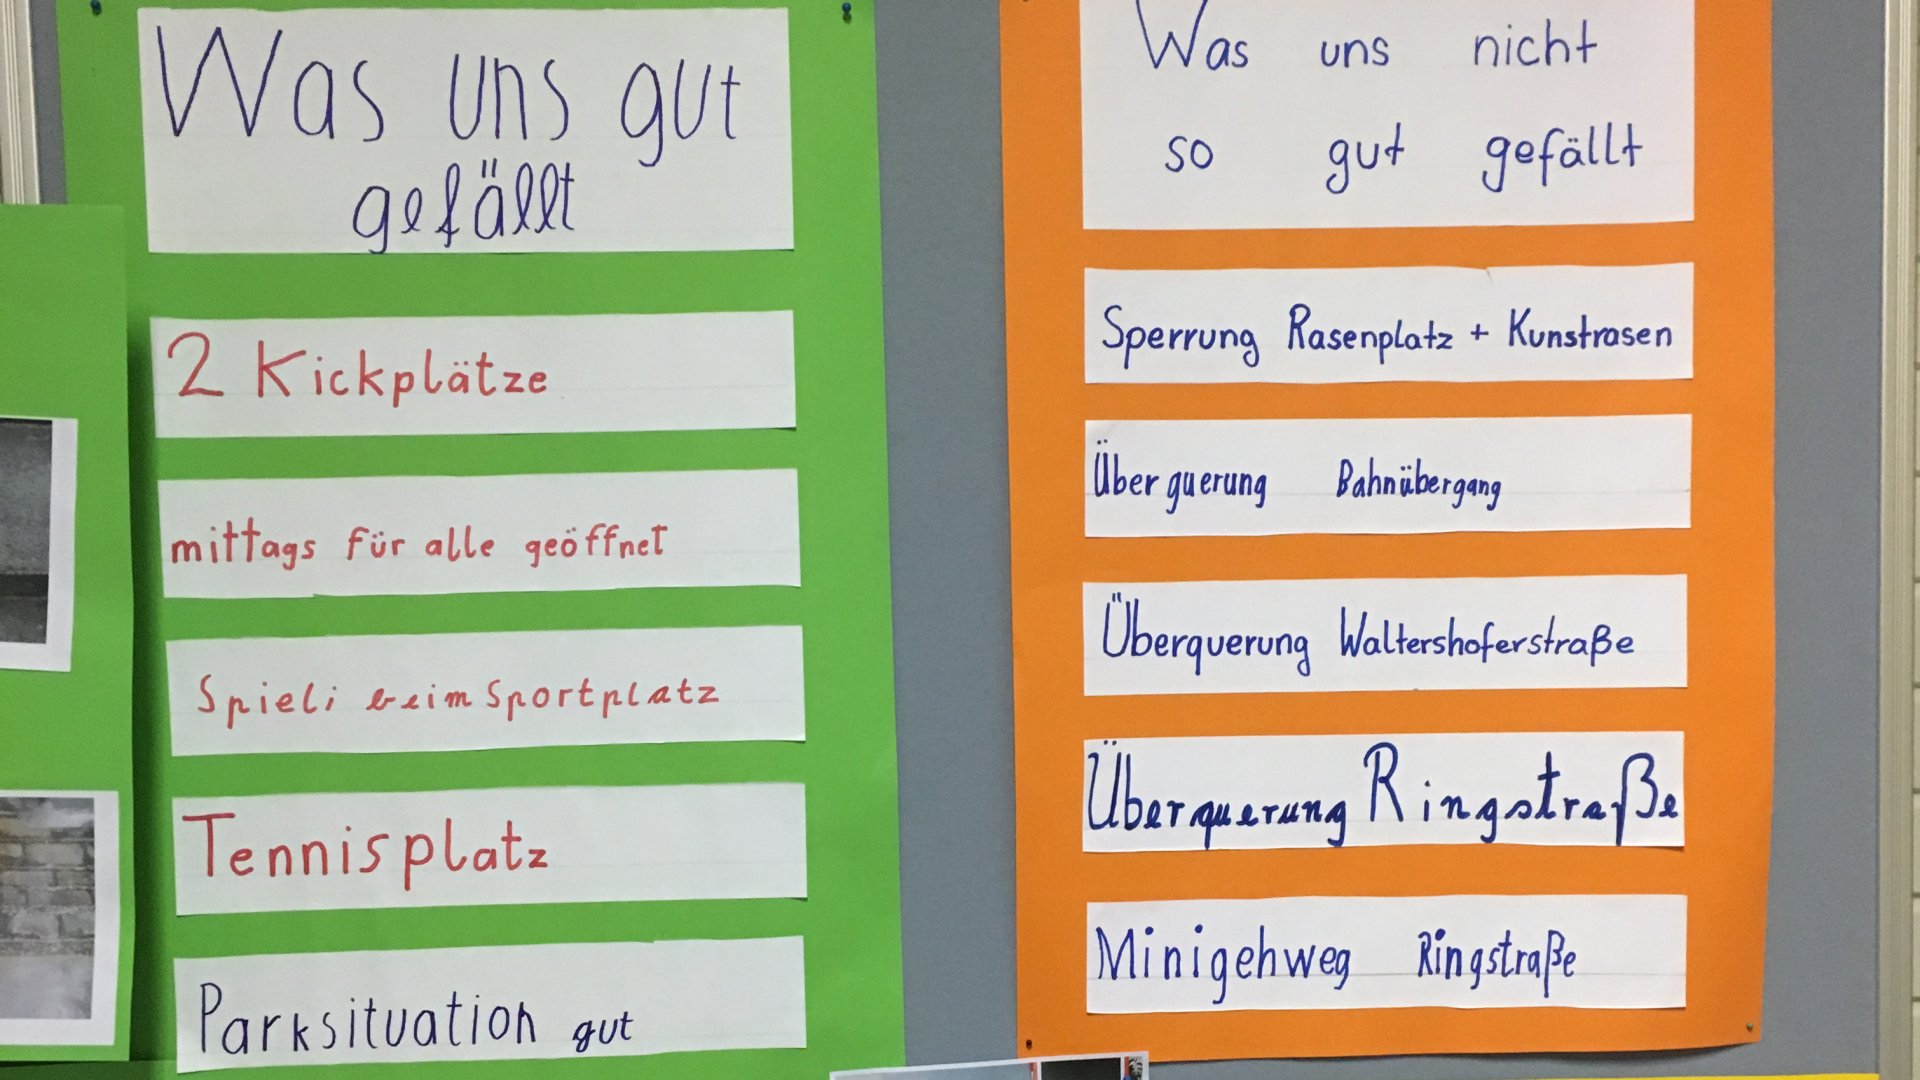 Was uns gut
gefällt
2 Kickplätze
mittags für alle geöffnet
Spieli beim Sportplatz
Tennisplatz
Parksituation gut
Was uns nicht
so gut gefällt
Sperrung Rasenplatz + Kunstrasen
Überquerung Bahnübergang
Überquerung Waltershoferstraße
Überquerung Ringstraße
Minigehweg Ringstraße